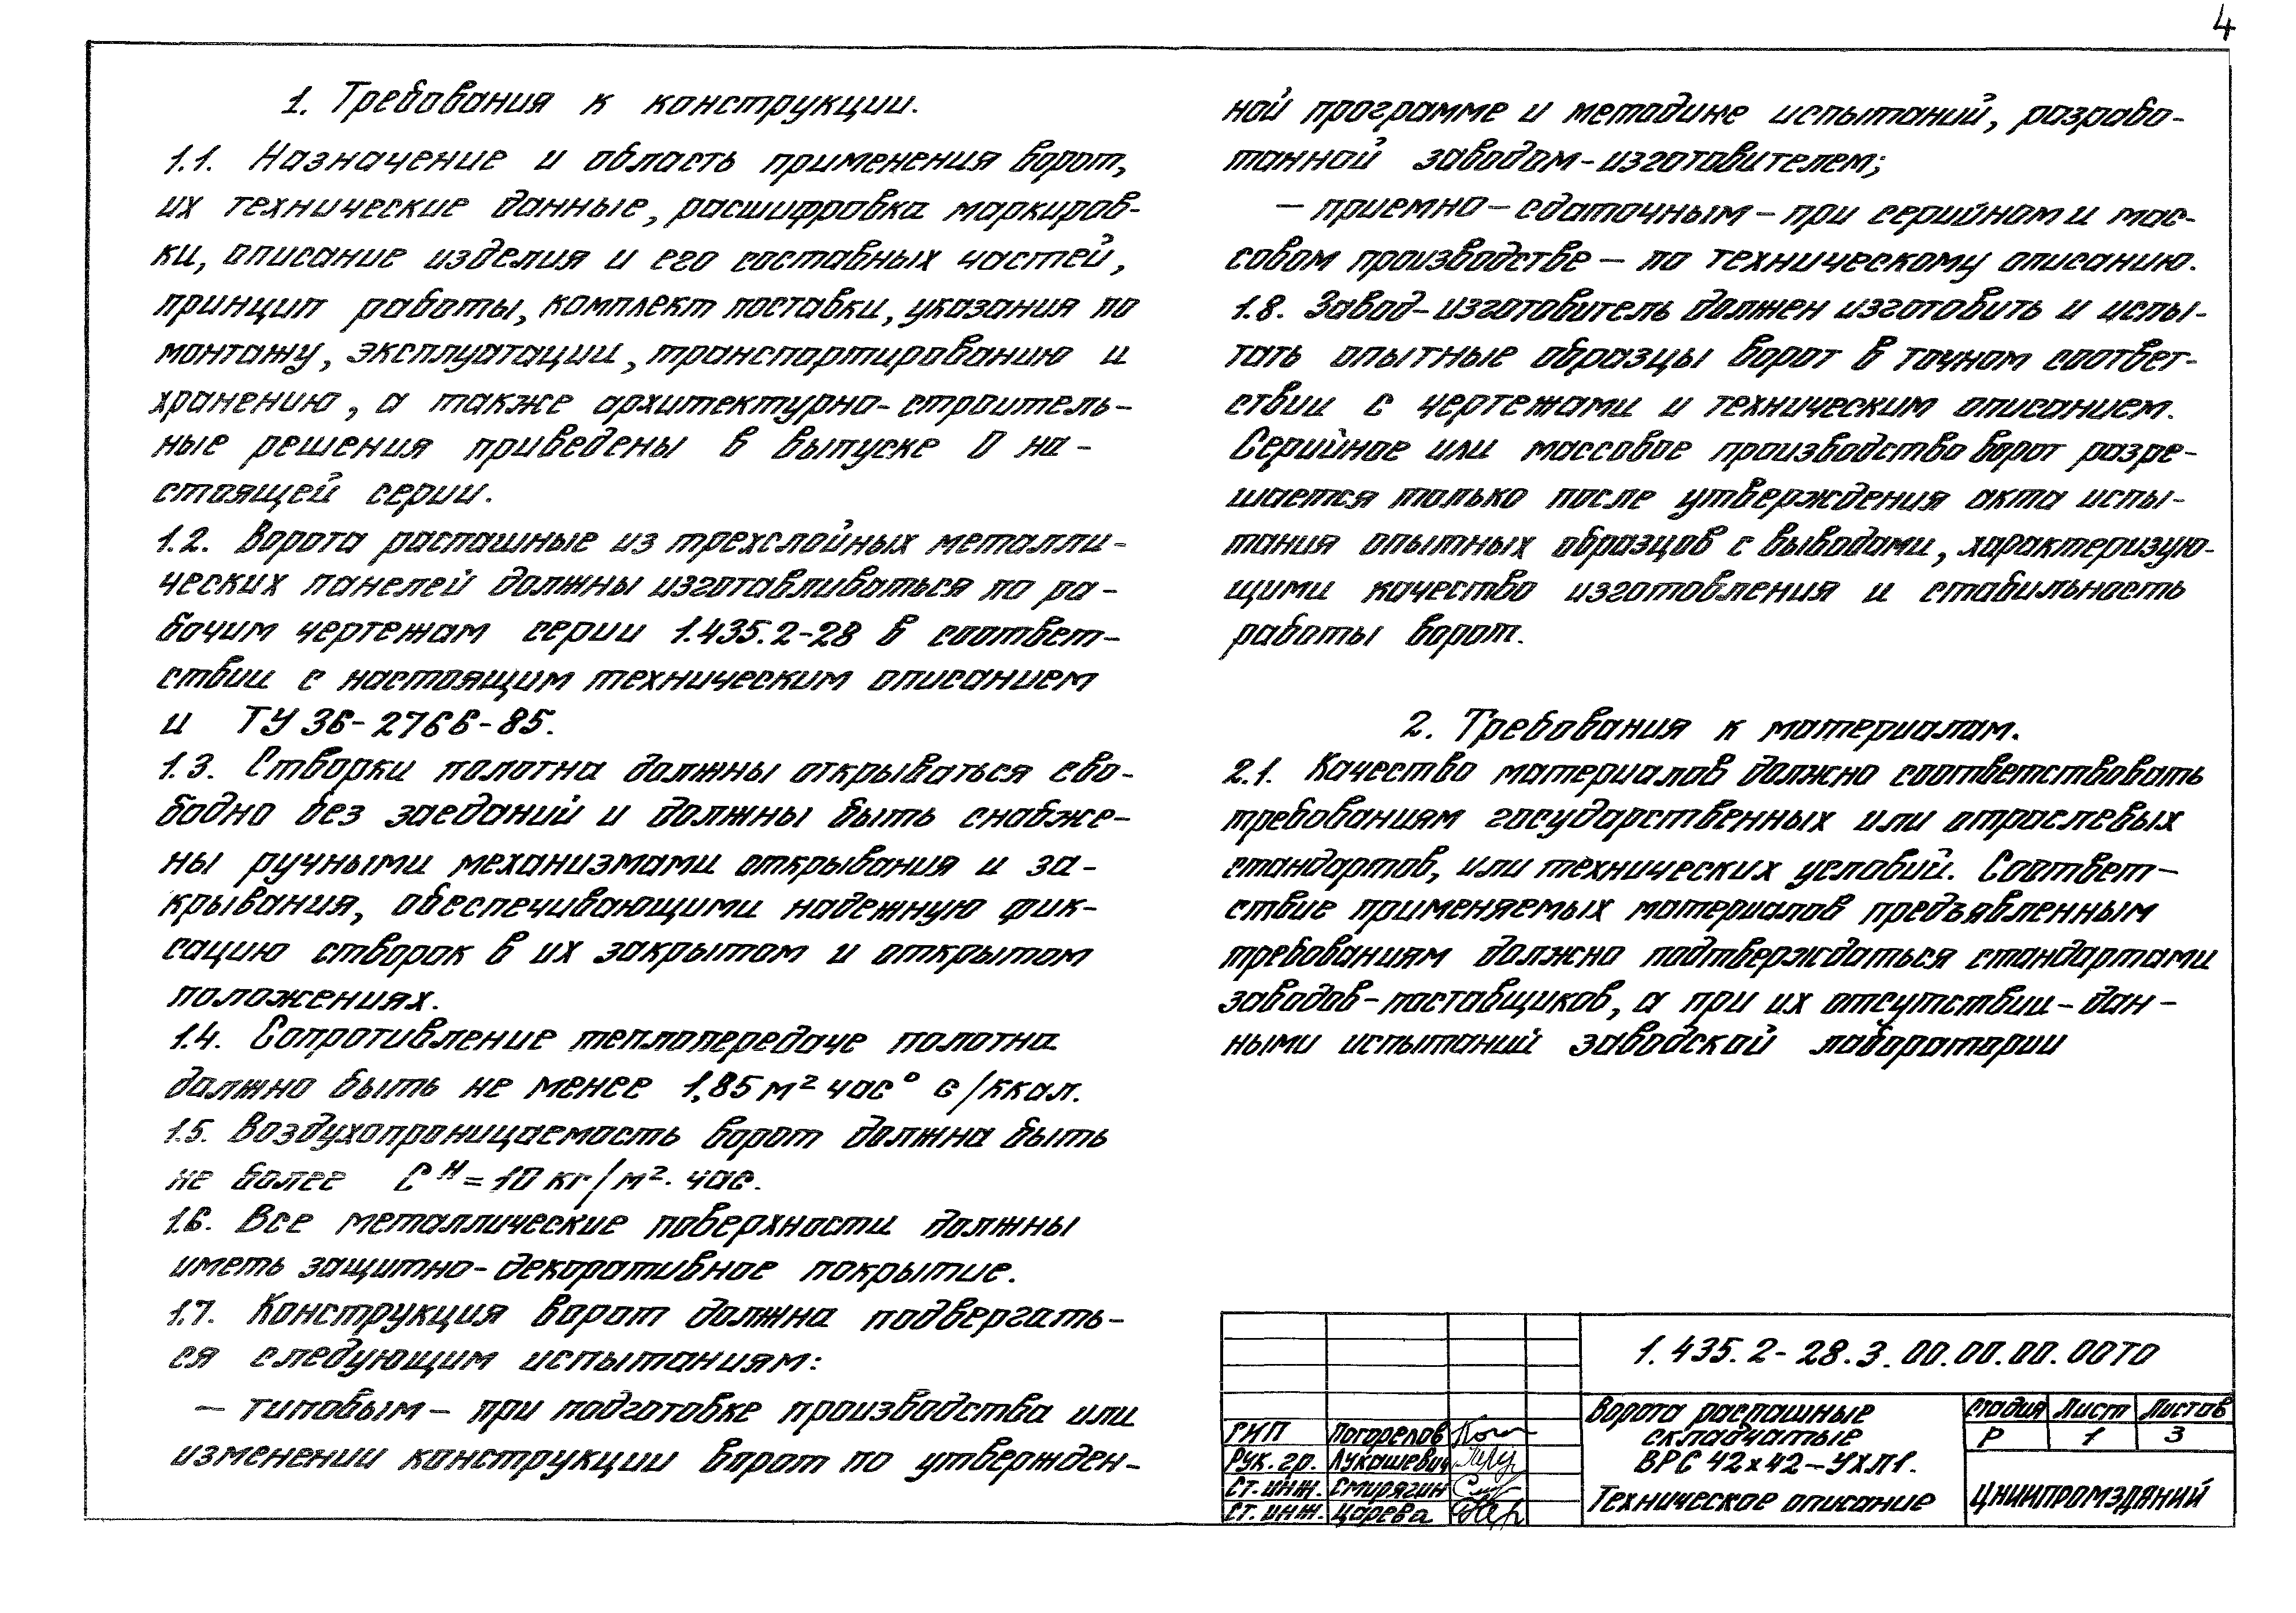 4
1. Требования к конструкции.
1.1. Назначение и область применения ворот,
их технические данные, расшифровка маркиров-
ки, описание изделия и его составных частей,
принцип работы, комплект поставки, указания по
монтажу, эксплуатации, транспортированию и
хранению, а также архитектурно-строитель-
ные решения приведены в выпуске 0 на-
стоящей серии.
1.2. Ворота распашные из трехслойных металли-
ческих панелей должны изготавливаться по ра-
бочим чертежам серии 1.435.2-28 в соответ-
ствии с настоящим техническим описанием
и ТУ 36-2766-85.
1.3. Створки полотна должны открываться сво-
бодно без заеданий и должны быть снабже-
ны ручными механизмами открывания и за-
крывания, обеспечивающими надежную фик-
сацию створок в их закрытом и открытом
положениях.
1.4. Сопротивление теплопередаче полотна
должно быть не менее 1,85 м² час° с/ккал.
1.5. Воздухопроницаемость ворот должна быть
не более Cᴴ = 10 кг/м². час.
1.6. Все металлические поверхности должны
иметь защитно-декоративное покрытие.
1.7. Конструкция ворот должна подвергать-
ся следующим испытаниям:
– типовым – при подготовке производства или
изменении конструкции ворот по утвержден-
ной программе и методике испытаний, разрабо-
танной заводом-изготовителем;
– приемно-сдаточным – при серийном и мас-
совом производстве – по техническому описанию.
1.8. Завод-изготовитель должен изготовить и испы-
тать опытные образцы ворот в точном соответ-
ствии с чертежами и техническим описанием.
Серийное или массовое производство ворот разре-
шается только после утверждения акта испы-
тания опытных образцов с выводами, характеризую-
щими качество изготовления и стабильность
работы ворот.
2. Требования к материалам.
2.1. Качество материалов должно соответствовать
требованиям государственных или отраслевых
стандартов, или технических условий. Соответ-
ствие применяемых материалов предъявленным
требованиям должно подтверждаться стандартами
заводов-поставщиков, а при их отсутствии – дан-
ными испытаний заводской лаборатории
1.435.2-28.3.00.00.00.00ТО
ГИП Погорелов
Рук. гр. Лукашевич
Ст. инж. Смирягин
Ст. инж. Царева
Ворота распашные
складчатые
ВРС 42х42-УХЛ1.
Техническое описание
Стадия Лист Листов
Р 1 3
ЦНИИПРОМЗДАНИЙ